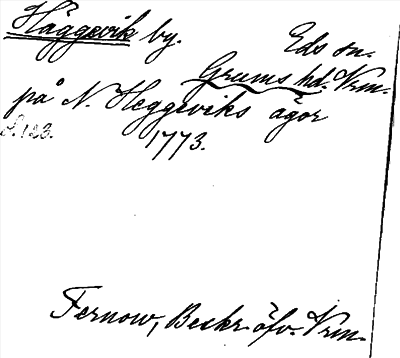 Häggevik by. Eds sn.
Grums hd. Vrm.
på N. Heggeviks ägor
S. 123. 1773.
Fernow, Beskr. öfv. Vrm.